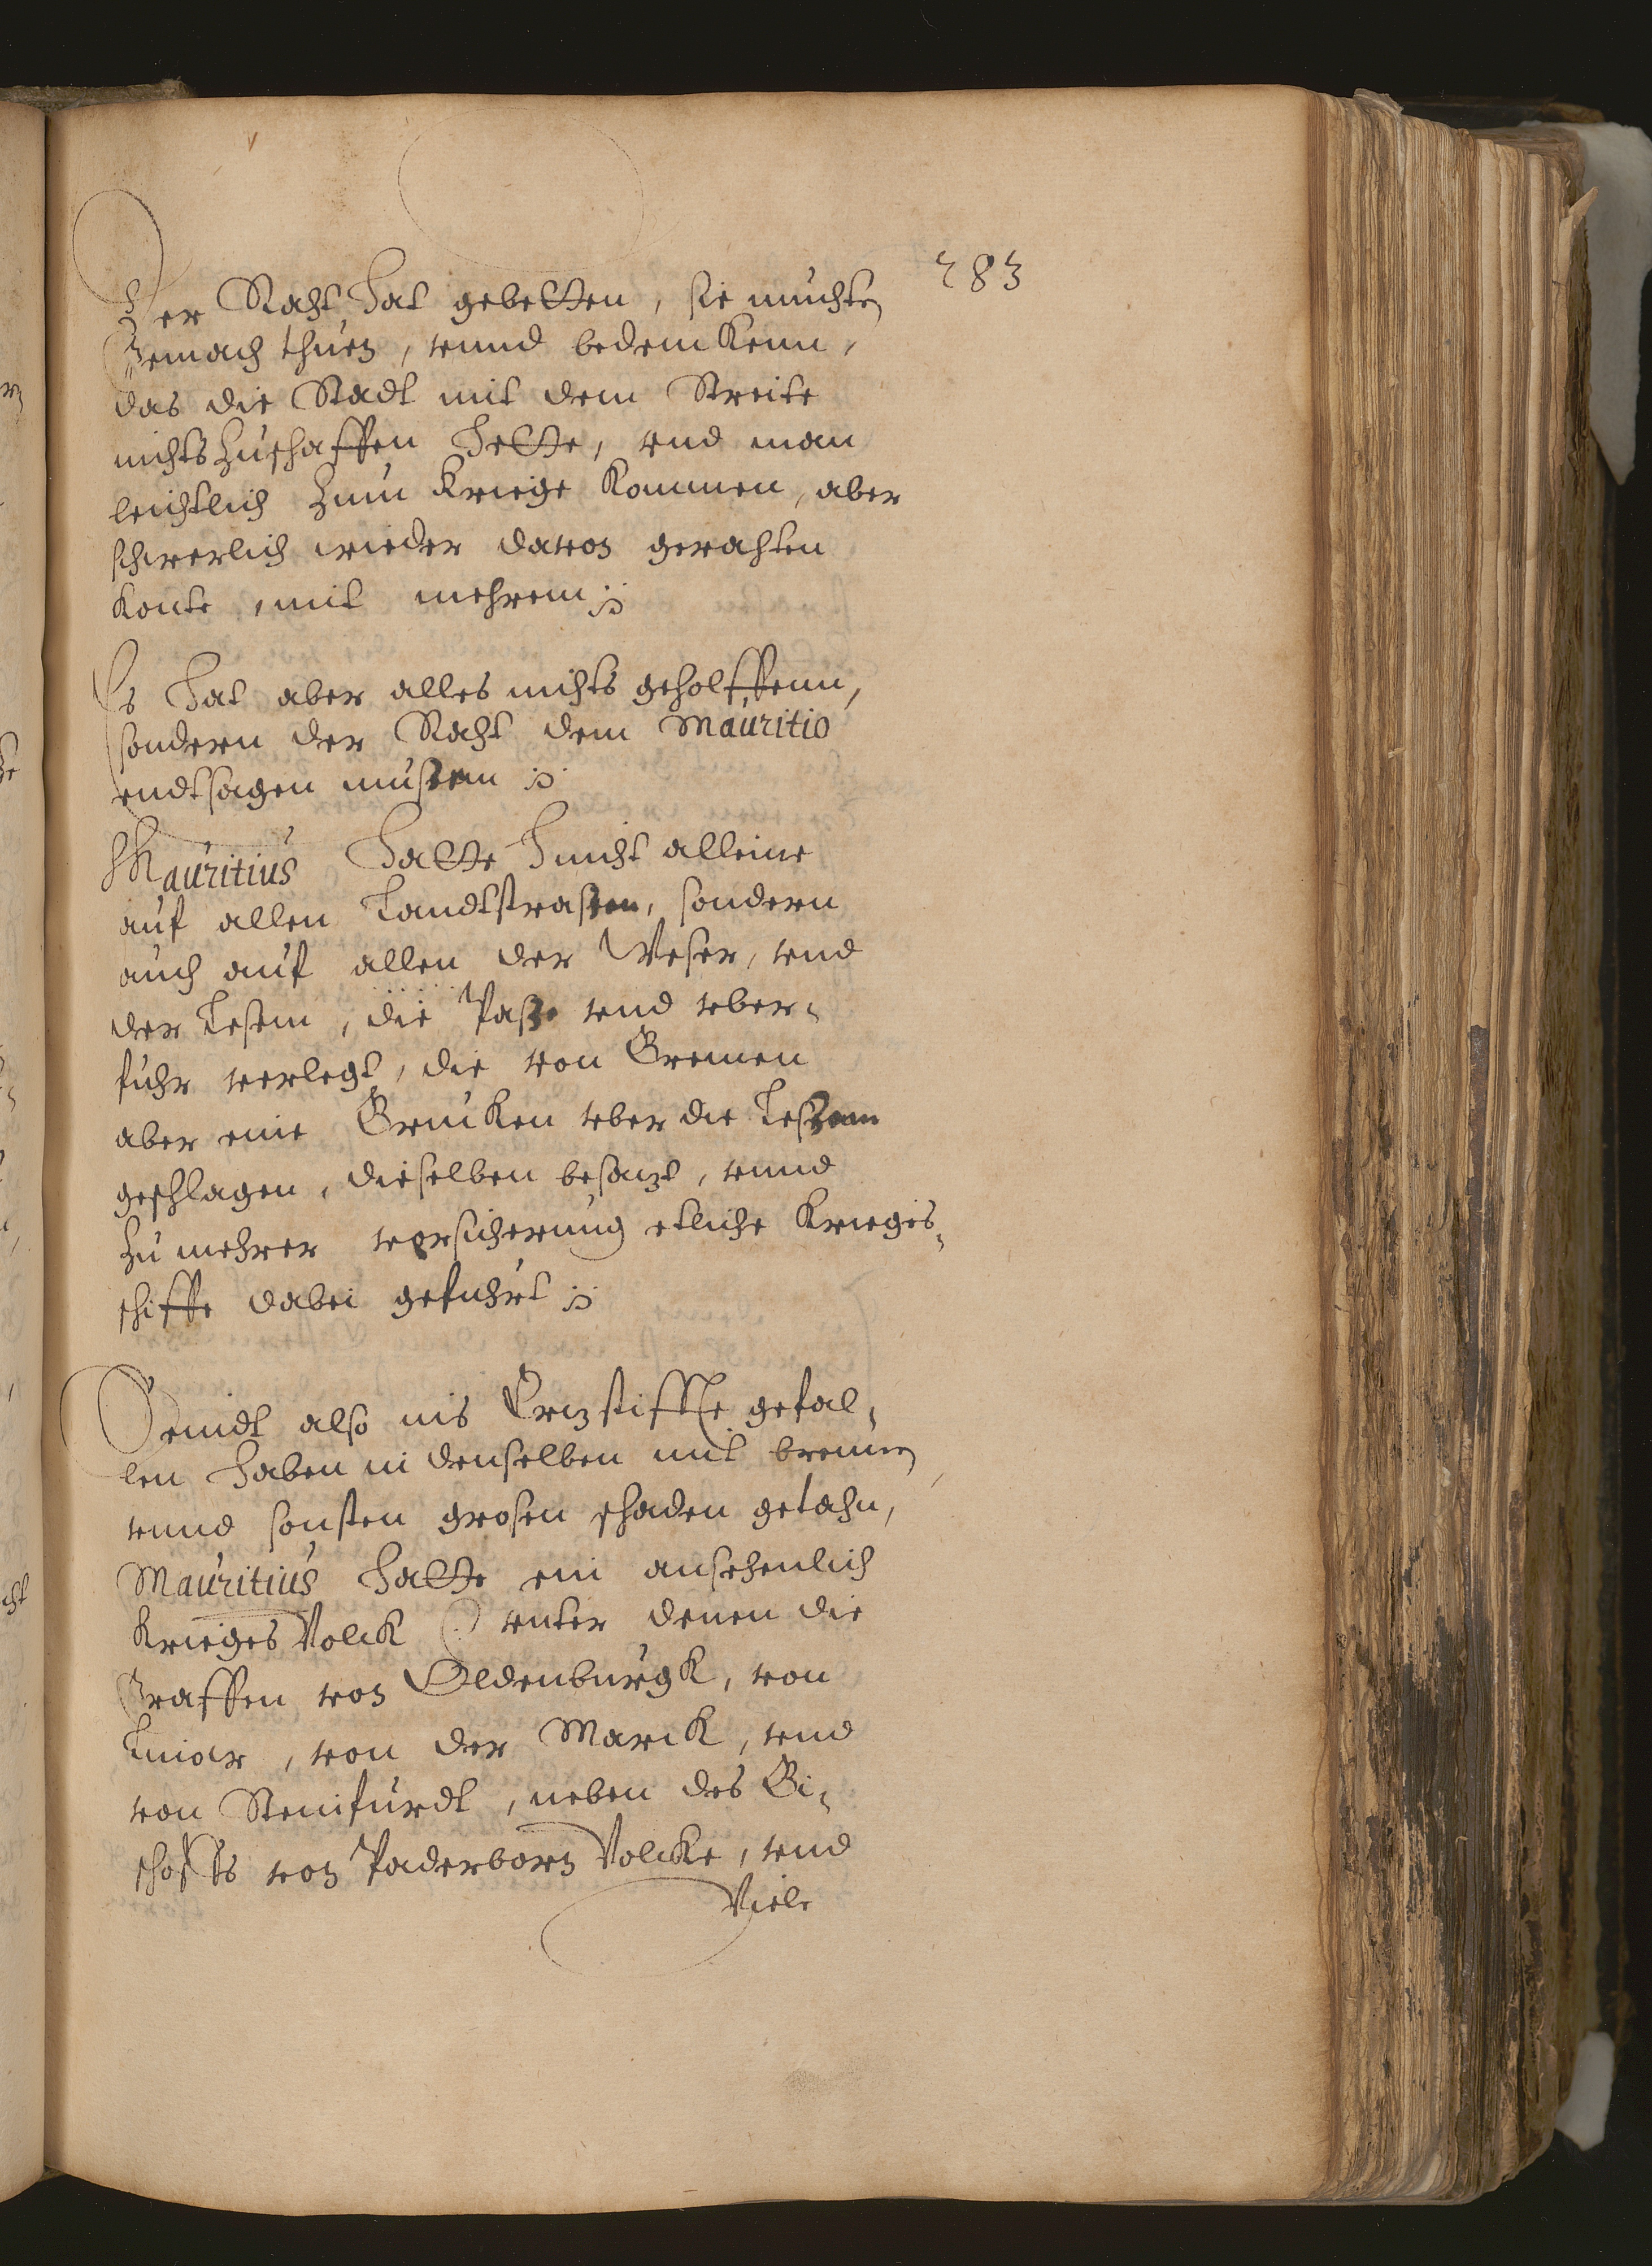 283
Der Raht hat gebetten, sie muchten
Gemach thuen, vnnd bedemkenn,
das die Stadt mit dem Streite
nichts zuschaffen hette, vnd man
leichtlich zum Kriege kommen, aber
schwerlich wieder davon gerahten
konte, mit mehrem
Es hat aber alles nichts geholffenn,
sondern der Raht dem Mauritio
endtsagen mussenn
Mauritius hatte nicht alleine
auf allen Landtstrassen, sondern
auch auf allen der Weser, vnd
der Lesem, die Passe vnd vber-
fuhr verlegt, die von Bremen
aber eine Brucken vber die Lessem
geschlagen, dieselben besazt, vnnd
zu mehrer versicherung etliche Krieges-
schiffe dabei gefuhrt
Seindt also ins Erzstiffte gefal-
len haben in denselben mit brennen
vnnd sonsten grosen schaden getahn,
Mauritius hatte ein ansehenlich
Krieges Volck vnter denen die
Graffen von Oldenburgk, von
von der Marck, vnd
von Steinfurdt, neben des Bi-
schoffs von Paderborn Volcke, vnd
Viele